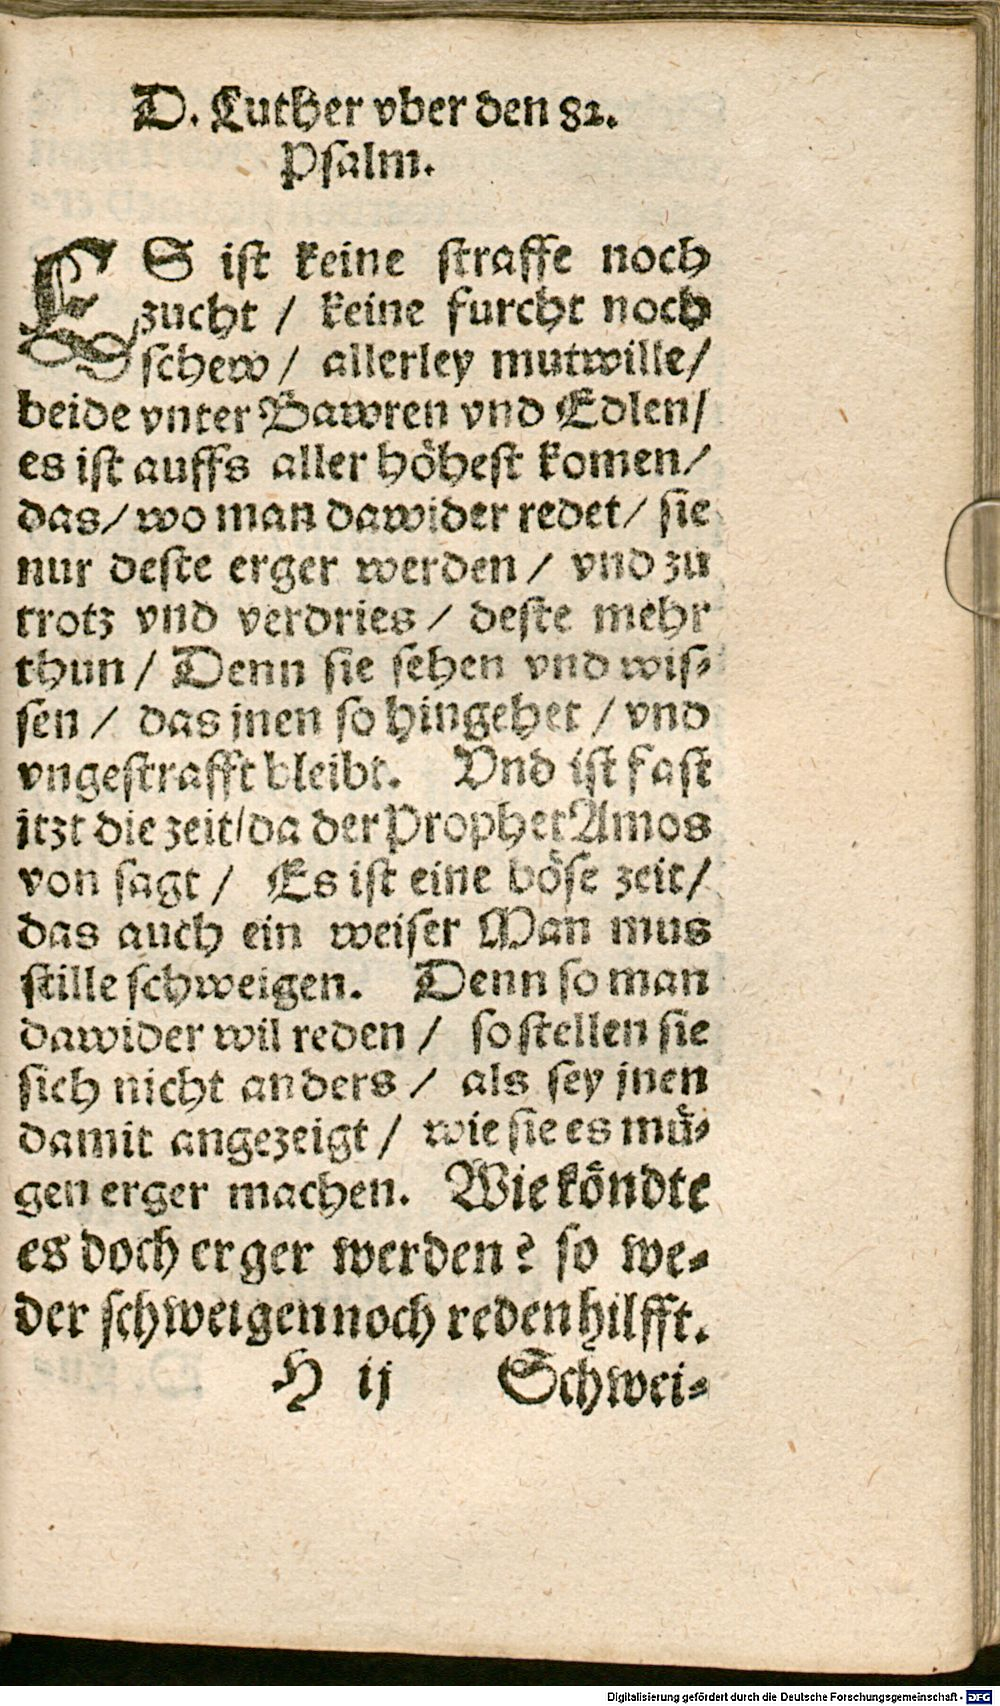 D. Luther vber den 82.
Psalm.
ES ist keine straffe noch
zucht / keine furcht noch
schew / allerley mutwille /
beide vnter Bawren vnd Edlen /
es ist auffs aller höhest komen /
das / wo man dawider redet / sie
nur deste erger werden / vnd zu
trotz vnd verdries / deste mehr
thun / Denn sie sehen vnd wis-
sen / das jnen so hingehet / vnd
vngestrafft bleibt. Vnd ist fast
itzt die zeit / da der Prophet Amos
von sagt / Es ist eine böse zeit /
das auch ein weiser Man mus
stille schweigen. Denn so man
dawider wil reden / so stellen sie
sich nicht anders / als sey jnen
damit angezeigt / wie sie es mü-
gen erger machen. Wie köndte
es doch erger werden? so we-
der schweigen noch reden hilfft.
H ij Schwei-
Digitalisierung gefördert durch die Deutsche Forschungsgemeinschaft - DFG